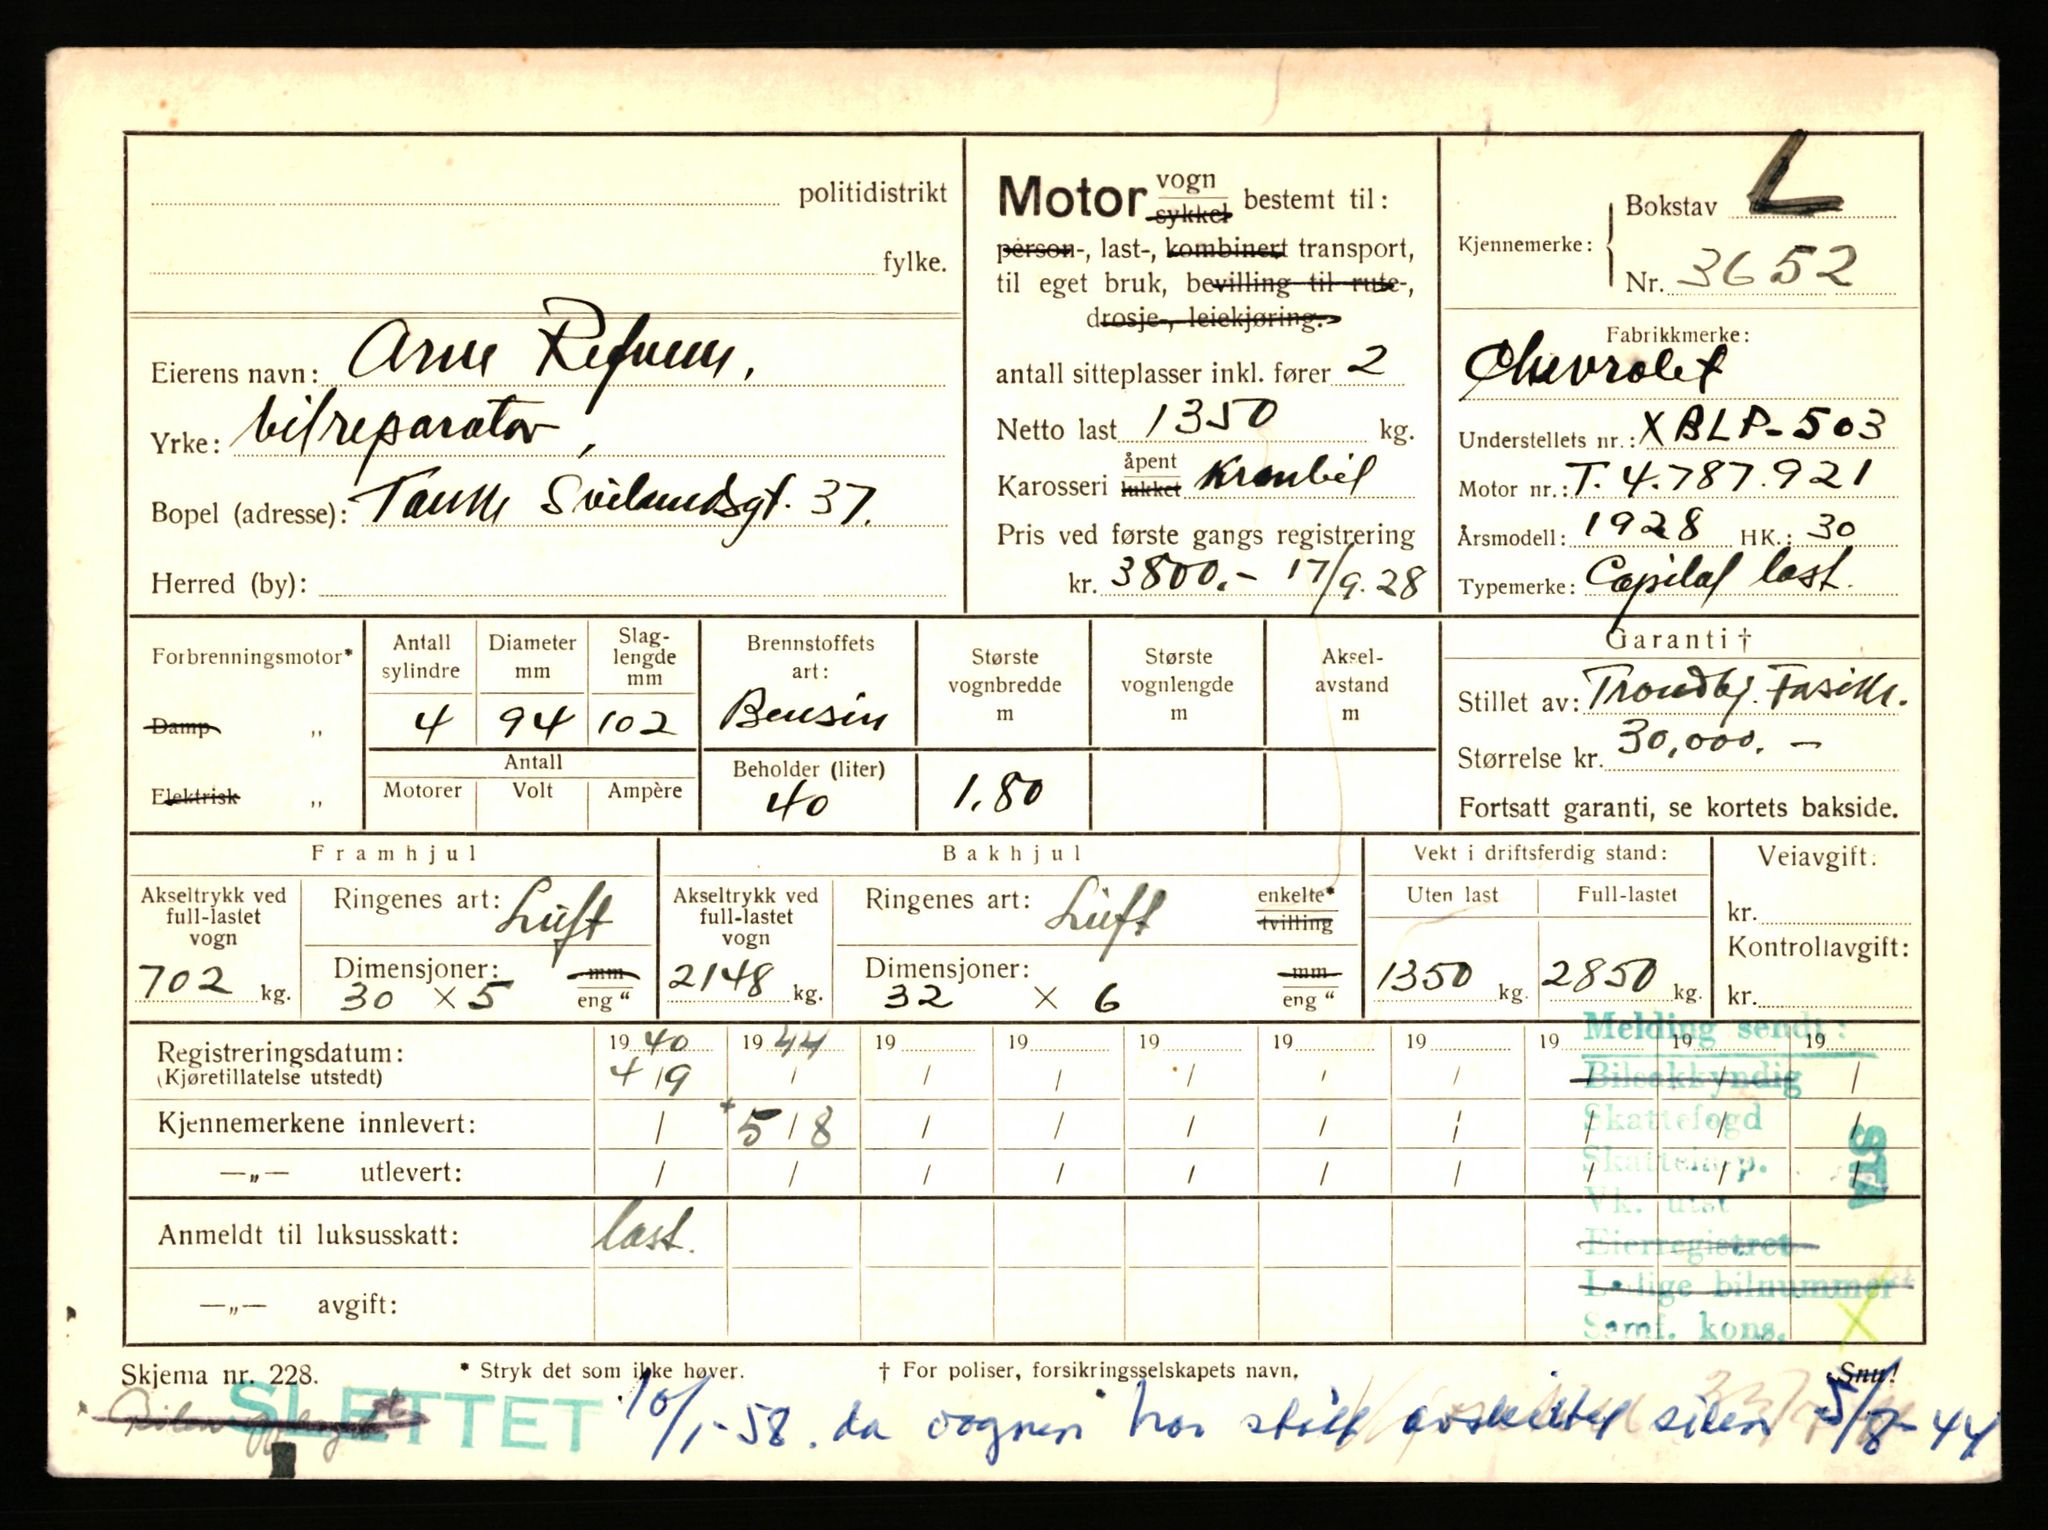 politidistrikt
fylke.
Eierens navn: Arne Refvem,
Yrke: bilreparatør,
Bopel (adresse): Tanke Svilandsgt. 37.
Herred (by):
Motor vogn sykkel bestemt til:
person-, last-, kombinert transport,
til eget bruk, bevilling til rute-,
drosje-, leiekjøring.
antall sitteplasser inkl. fører 2
Netto last 1350 kg.
Karosseri åpent lukket Kranbil
Pris ved første gangs registrering
kr. 3800.- 17/9.28
Kjennemerke: Bokstav L
Nr. 3652
Fabrikkmerke:
Chevrolet
Understellets nr.: XBLP-503
Motor nr.: T. 4.787.921
Årsmodell: 1928 HK.: 30
Typemerke: Capital last.
Forbrenningsmotor*
Damp „
Elektrisk „
Antall sylindre 4
Diameter mm 94
Slaglengde mm 102
Antall
Motorer Volt Ampère
Brennstoffets art: Bensin
Beholder (liter) 40
Største vognbredde m 1.80
Største vognlengde m
Akselavstand m
Garanti †
Stillet av: Trondhj.
Størrelse kr. 30,000.-
Fortsatt garanti, se kortets bakside.
Framhjul
Akseltrykk ved full-lastet vogn 702 kg.
Ringenes art: Luft
Dimensjoner: mm
30 × 5 eng "
Bakhjul
Akseltrykk ved full-lastet vogn 2148 kg.
Ringenes art: Luft enkelte* tvilling
Dimensjoner: mm
32 × 6 eng "
Vekt i driftsferdig stand:
Uten last Full-lastet
1350 kg. 2850 kg.
Veiavgift:
kr.
Kontrollavgift:
kr.
Registreringsdatum: 19 40 19 44 19 19 19 19 19 19 19 19
(Kjøretillatelse utstedt) 4/9 / / / / / / / / /
Kjennemerkene innlevert: / 5/8 / / / / / / / /
—„— utlevert: / / / / / / / / / /
Anmeldt til luksusskatt: last.
—„— avgift:
Melding sendt:
Bilsakkyndig
Skattefogd
Skatteinsp.
Vk. utst
Eierregistret
Ledige bilnummer
Samf. kons.
STA
Skjema nr. 228. * Stryk det som ikke høver. † For poliser, forsikringsselskapets navn. Snu!
Bilen opphugget
SLETTET 10/1-58. da vognen har stått avskiltet siden 5/8-44